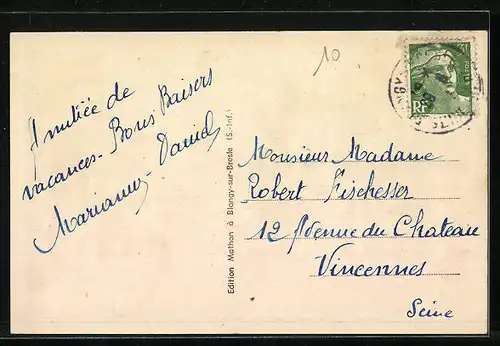 Amitiée de
vacances - Bons Baisers
Marianne - Daniel
10
Edition Mathon à Blangy-sur-Bresle (S.-Inf.)
RF
Monsieur Madame
Robert Fischesser
12 Avenue du Chateau
Vincennes
Seine